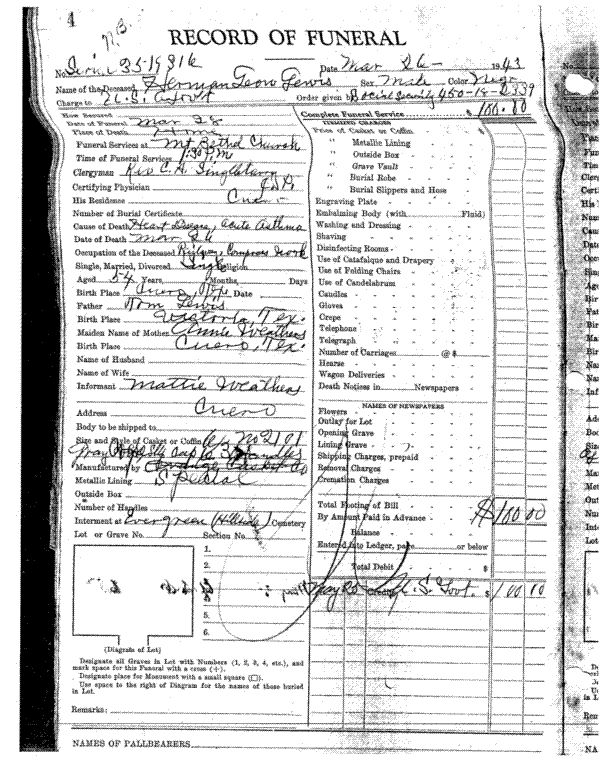 4
N.B.
RECORD OF FUNERAL
No. Serv. 35-19316 Date Mar 26- 1943
Name of the Deceased Herman Leon Lewis Sex Male Color Negro
Charge to U.S. Gov't Order given by Social Security 450-18-2339
How Secured
Date of Funeral Mar 28
Place of Death Home
Funeral Services at Mt Bethel Church
Time of Funeral Services 1:30 P.M
Clergyman Rev C. A. Singleton
Certifying Physician
His Residence Cuero
Number of Burial Certificate
Cause of Death Heart Disease, acute Asthma
Date of Death Mar 26
Occupation of the Deceased Compress Work
Single, Married, Divorced Single Religion
Aged 54 Years, Months, Days
Birth Place Cuero, Tex Date
Father Tom Lewis
Birth Place Victoria, Tex.
Maiden Name of Mother Annie Weathers
Birth Place Cuero, Tex.
Name of Husband
Name of Wife
Informant Mattie Weathers
Address Cuero
Body to be shipped to
Size and Style of Casket or Coffin No 2101
Gray
Manufactured by Casket Co
Metallic Lining Special
Outside Box
Number of Handles
Interment at Evergreen (Hillside) Cemetery
Lot or Grave No. Section No.
1.
2.
3.
4.
5.
6.
(Diagram of Lot)
Designate all Graves in Lot with Numbers (1, 2, 3, 4, etc.), and
mark space for this Funeral with a cross (+).
Designate place for Monument with a small square (□).
Use space to the right of Diagram for the names of those buried
in Lot.
Remarks:
NAMES OF PALLBEARERS
Complete Funeral Service $ 100.00
ITEMIZED CHARGES
Price of Casket or Coffin $
" Metallic Lining
" Outside Box
" Grave Vault
" Burial Robe
" Burial Slippers and Hose
Engraving Plate
Embalming Body (with Fluid)
Washing and Dressing
Shaving
Disinfecting Rooms
Use of Catafalque and Drapery
Use of Folding Chairs
Use of Candelabrum
Candles
Gloves
Crepe
Telephone
Telegraph
Number of Carriages @ $
Hearse
Wagon Deliveries
Death Notices in Newspapers
NAMES OF NEWSPAPERS
Flowers
Outlay for Lot
Opening Grave
Lining Grave
Shipping Charges, prepaid
Removal Charges
Cremation Charges
Total Footing of Bill $ 100 00
By Amount Paid in Advance
Balance
Entered into Ledger, page or below
Total Debit $
May 20 U. S. Govt. $ 100 00